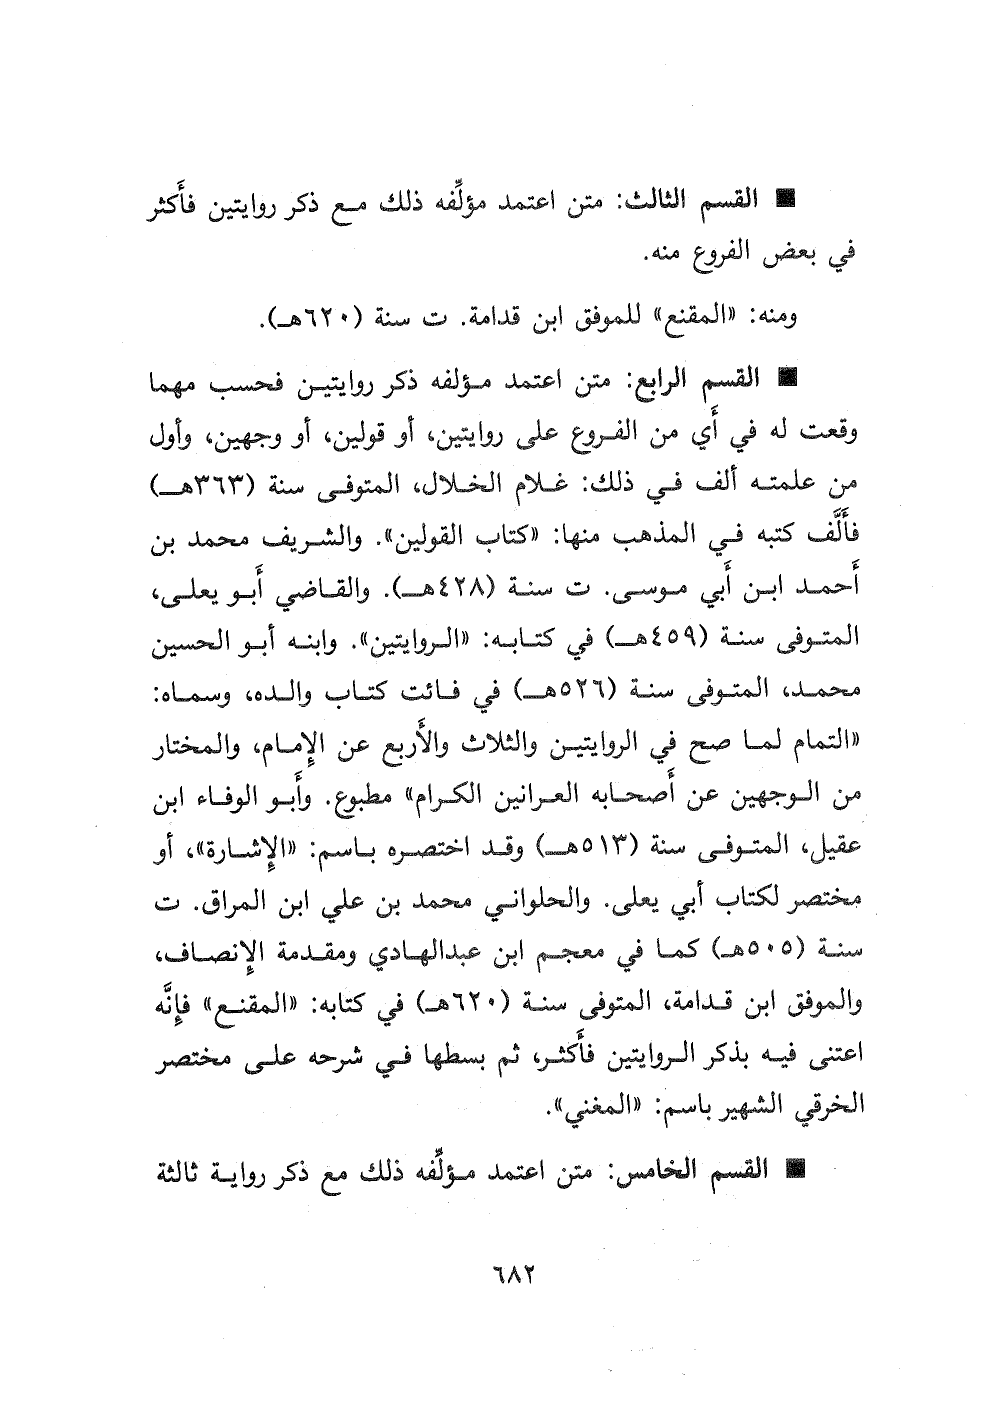 ■ القسم الثالث: متن اعتمد مؤلِّفه ذلك مع ذكر روايتين فأَكثر
في بعض الفروع منه.
ومنه: «المقنع» للموفق ابن قدامة. ت سنة (٦٢٠هـ).
■ القسم الرابع: متن اعتمد مؤلفه ذكر روايتين فحسب مهما
وقعت له في أَي من الفروع على روايتين، أو قولين، أو وجهين، وأول
من علمته ألف في ذلك: غلام الخلال، المتوفى سنة (٣٦٣هـ)
فأَلَّف كتبه في المذهب منها: «كتاب القولين». والشريف محمد بن
أَحمد ابن أَبي موسى. ت سنة (٤٢٨هـ). والقاضي أَبو يعلى،
المتوفى سنة (٤٥٩هـ) في كتابه: «الروايتين». وابنه أبو الحسين
محمد، المتوفى سنة (٥٢٦هـ) في فائت كتاب والده، وسماه:
«التمام لما صح في الروايتين والثلاث والأَربع عن الإِمام، والمختار
من الوجهين عن أَصحابه العرانين الكرام» مطبوع. وأَبو الوفاء ابن
عقيل، المتوفى سنة (٥١٣هـ) وقد اختصره باسم: «الإِشارة»، أو
مختصر لكتاب أبي يعلى. والحلواني محمد بن علي ابن المراق. ت
سنة (٥٠٥هـ) كما في معجم ابن عبدالهادي ومقدمة الإِنصاف،
والموفق ابن قدامة، المتوفى سنة (٦٢٠هـ) في كتابه: «المقنع» فإِنَّه
اعتنى فيه بذكر الروايتين فأَكثر، ثم بسطها في شرحه على مختصر
الخرقي الشهير باسم: «المغني».
■ القسم الخامس: متن اعتمد مؤلِّفه ذلك مع ذكر رواية ثالثة
٦٨٢